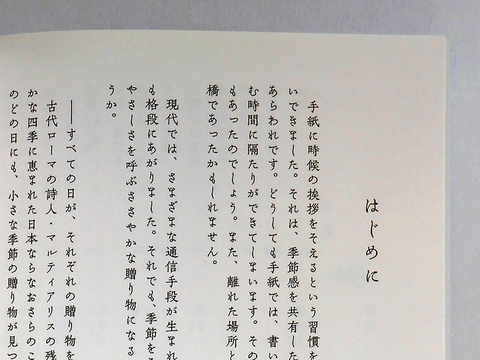 はじめに
手紙に時候の挨拶をそえるという習慣を
いできました。それは、季節感を共有した
あらわれです。どうしても手紙では、書い
む時間に隔たりができてしまいます。その
もあったのでしょう。また、離れた場所と
橋であったかもしれません。
現代では、さまざまな通信手段が生まれ
も格段にあがりました。それでも、季節を
やさしさを呼ぶささやかな贈り物になる
うか。
――すべての日が、それぞれの贈り物を
古代ローマの詩人・マルティアリスの残
かな四季に恵まれた日本ならなおさらのこ
のどの日にも、小さな季節の贈り物が見つ